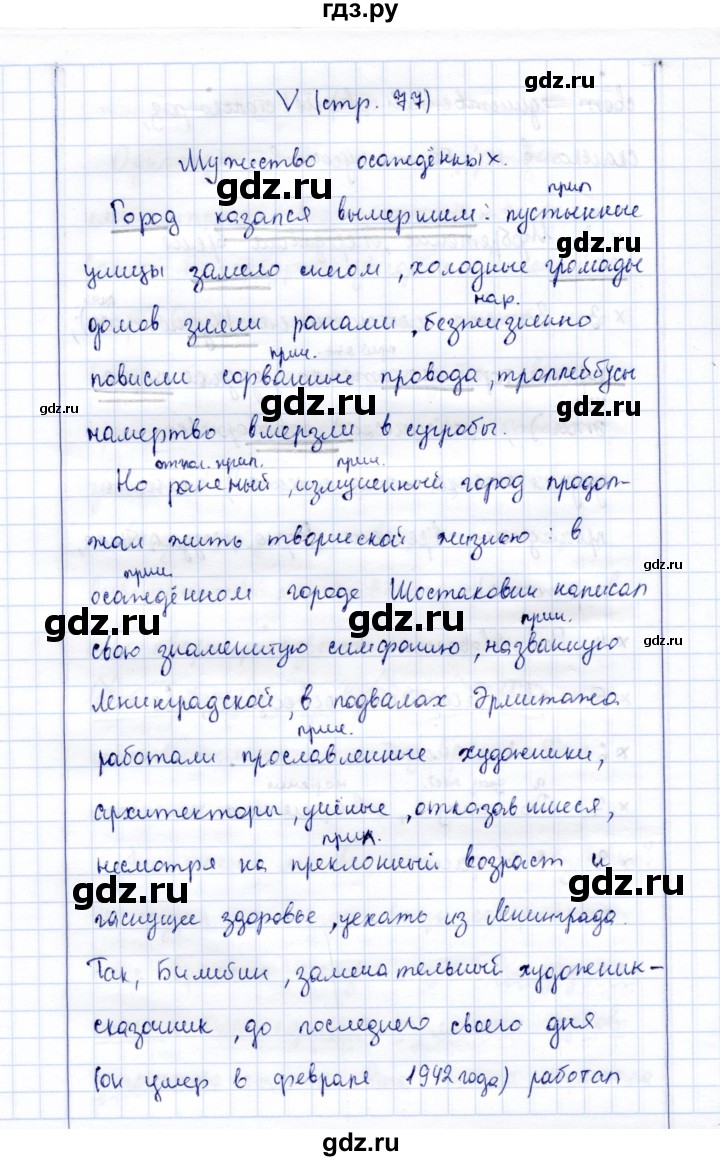 гдз.ру
V (стр. 77)
gdz.ru
Мужество осаждённых.
gdz.ru
прил
Город казался вымершим: пустынные
gdz.ru
улицы замело снегом, холодные громады
нар.
домов зияли ранами, безжизненно
прич.
повисли сорвавшие провода, троллеббусы
gdz.ru gdz.ru gdz.ru
намертво вмерзли в сугробы.
отгл. прил. прич.
Но раненый, измученный город продол-
жал жить творческой жизнью: в
gdz.ru
прич.
осаждённом городе Шостакович написал
gdz.ru gdz.ru gdz.ru
прич.
свою знаменитую симфонию, названную
Ленинградской, в подвалах Эрмитажа
прич.
работали прославленные художники,
gdz.ru gdz.ru
архитекторы, учёные, отказавшиеся,
прил.
несмотря на преклонный возраст и
gdz.ru gdz.ru
гаснущее здоровье, уехать из Ленинграда.
Так, Билибин, замечательный художник-
gdz.ru
сказочник, до последнего своего дня
gdz.ru gdz.ru
(он умер в феврале 1942 года) работал
gdz.ru